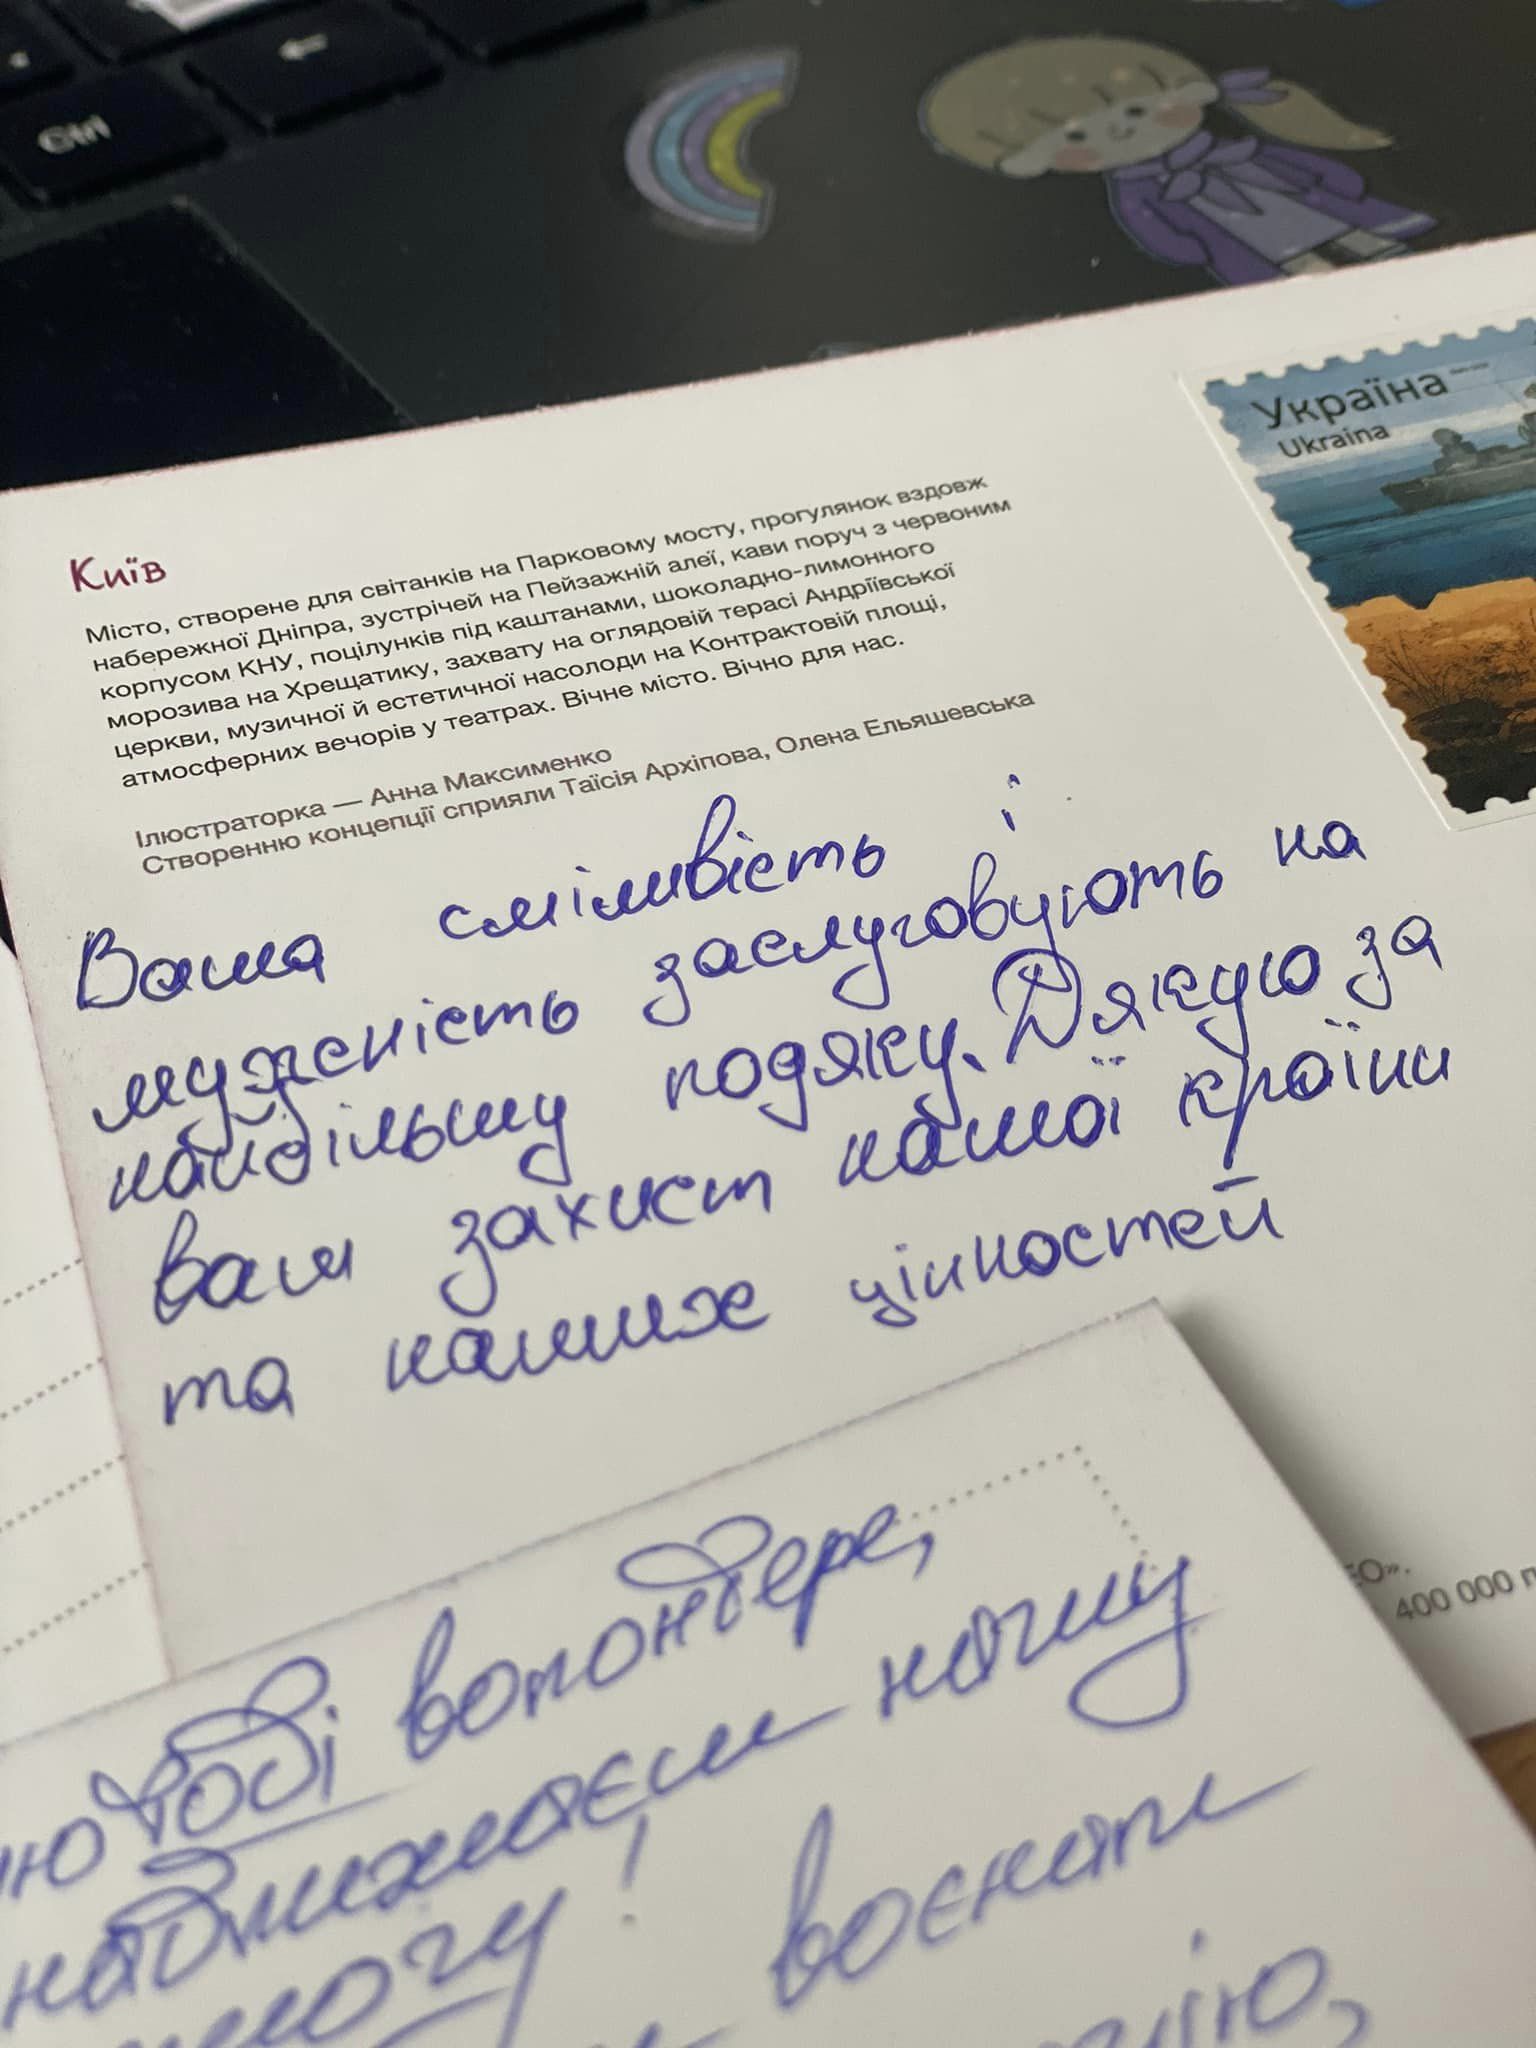 Ctrl
Україна
Ukraina
Київ
Місто, створене для світанків на Парковому мосту, прогулянок вздовж
набережної Дніпра, зустрічей на Пейзажній алеї, кави поруч з червоним
корпусом КНУ, поцілунків під каштанами, шоколадно-лимонного
морозива на Хрещатику, захвату на оглядовій терасі Андріївської
церкви, музичної й естетичної насолоди на Контрактовій площі,
атмосферних вечорів у театрах. Вічне місто. Вічно для нас.
Ілюстраторка — Анна Максименко
Створенню концепції сприяли Таїсія Архіпова, Олена Ельяшевська
Ваша сміливість і
мужність заслуговують на
найбільшу подяку. Дякую за
ваш захист нашої країни
та наших цінностей
400 000
тобі волонтере,
нашу
!